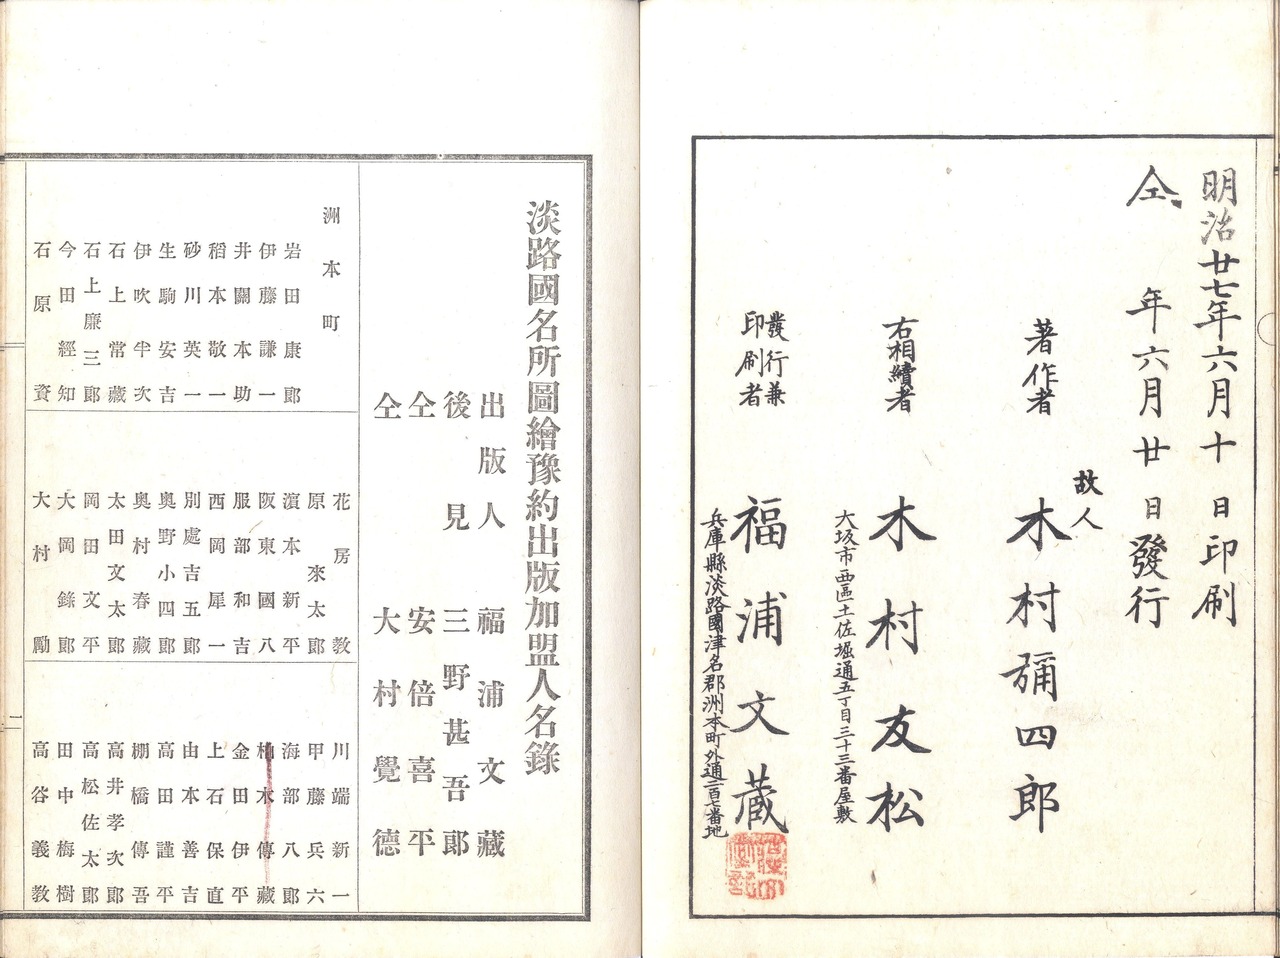 明治廿七年六月十日印刷
仝年六月廿日發行
著作者 故人 木村彌四郎
右相續者 木村友松
大坂市西區土佐堀通五丁目三十三番屋敷
發行兼印刷者 福浦文蔵
兵庫縣淡路國津名郡洲本町外通二百七番地
淡路國名所圖繪豫約出版加盟人名錄
出版人 福浦文藏
後見 三野甚吾郎
仝 安倍喜平
仝 大村覺德
洲本町
岩田康郎
伊藤謙一
井關本助
稻本敬一
砂川英一
生駒安吉
伊吹半次
石上常藏
石上廉三郎
今田經知
石原資
花房教
原來太郎
濵本新平
阪東國八
服部和吉
西岡犀一
別處吉五郎
奥野小四郎
奥村春藏
太田文太郎
岡田文平
大岡錄郎
大村勵
川端新一
甲藤兵六
海部八郎
柏木傳藏
金田伊平
上石保直
由本善吉
高田謹平
棚橋傳吾
高井孝次郎
高松佐太郎
田中梅樹
高谷義教
一